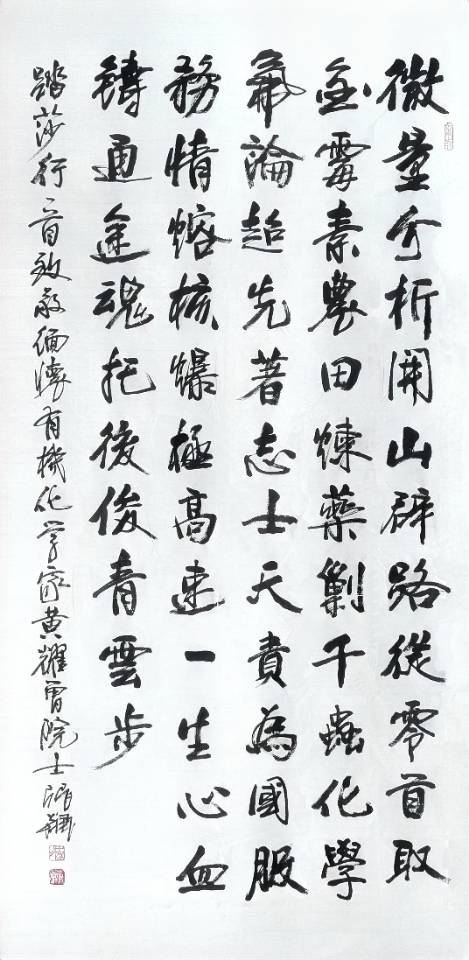 微量分析開山辟路從零首取
金霉素農田煉藥剿千蟲化學
氟論超先著志士天貴為國服
務情熔核爆極高速一生心血
鑄通途魂托後俊青雲步
踏莎行一首致敬緬懷有機化学家黄耀曾院士